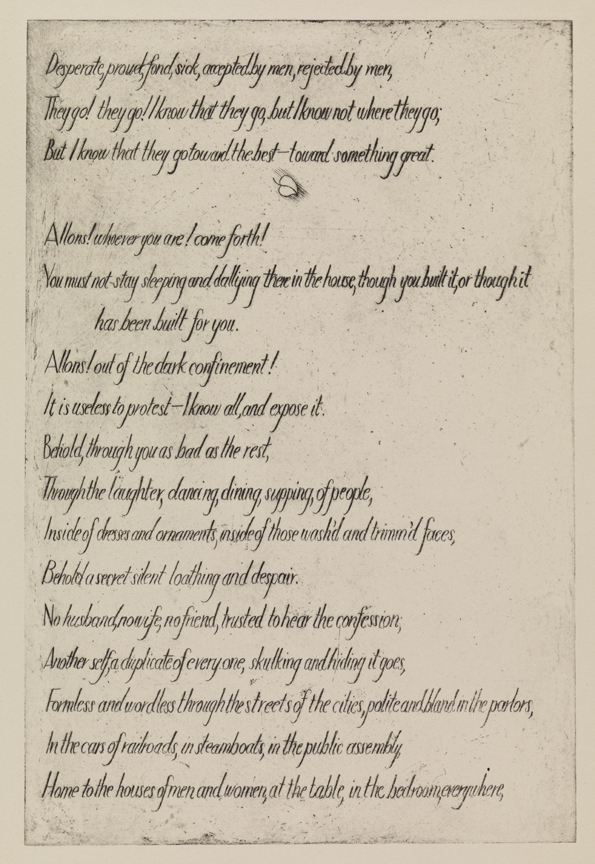 Desperate, proud, fond, sick, accepted by men, rejected by men,
They go! they go! I know that they go, but I know not where they go;
But I know that they go toward the best—toward something great.
Allons! whoever you are! come forth!
You must not stay sleeping and dallying there in the house, though you built it, or though it
has been built for you.
Allons! out of the dark confinement!
It is useless to protest—I know all, and expose it.
Behold, through you as bad as the rest,
Through the laughter, dancing, dining, supping, of people,
Inside of dresses and ornaments, inside of those wash'd and trimm'd faces,
Behold a secret silent loathing and despair.
No husband, no wife, no friend, trusted to hear the confession;
Another self, a duplicate of every one, skulking and hiding it goes,
Formless and wordless through the streets of the cities, polite and bland in the parlors,
In the cars of railroads, in steamboats, in the public assembly,
Home to the houses of men and women, at the table, in the bedroom, everywhere,